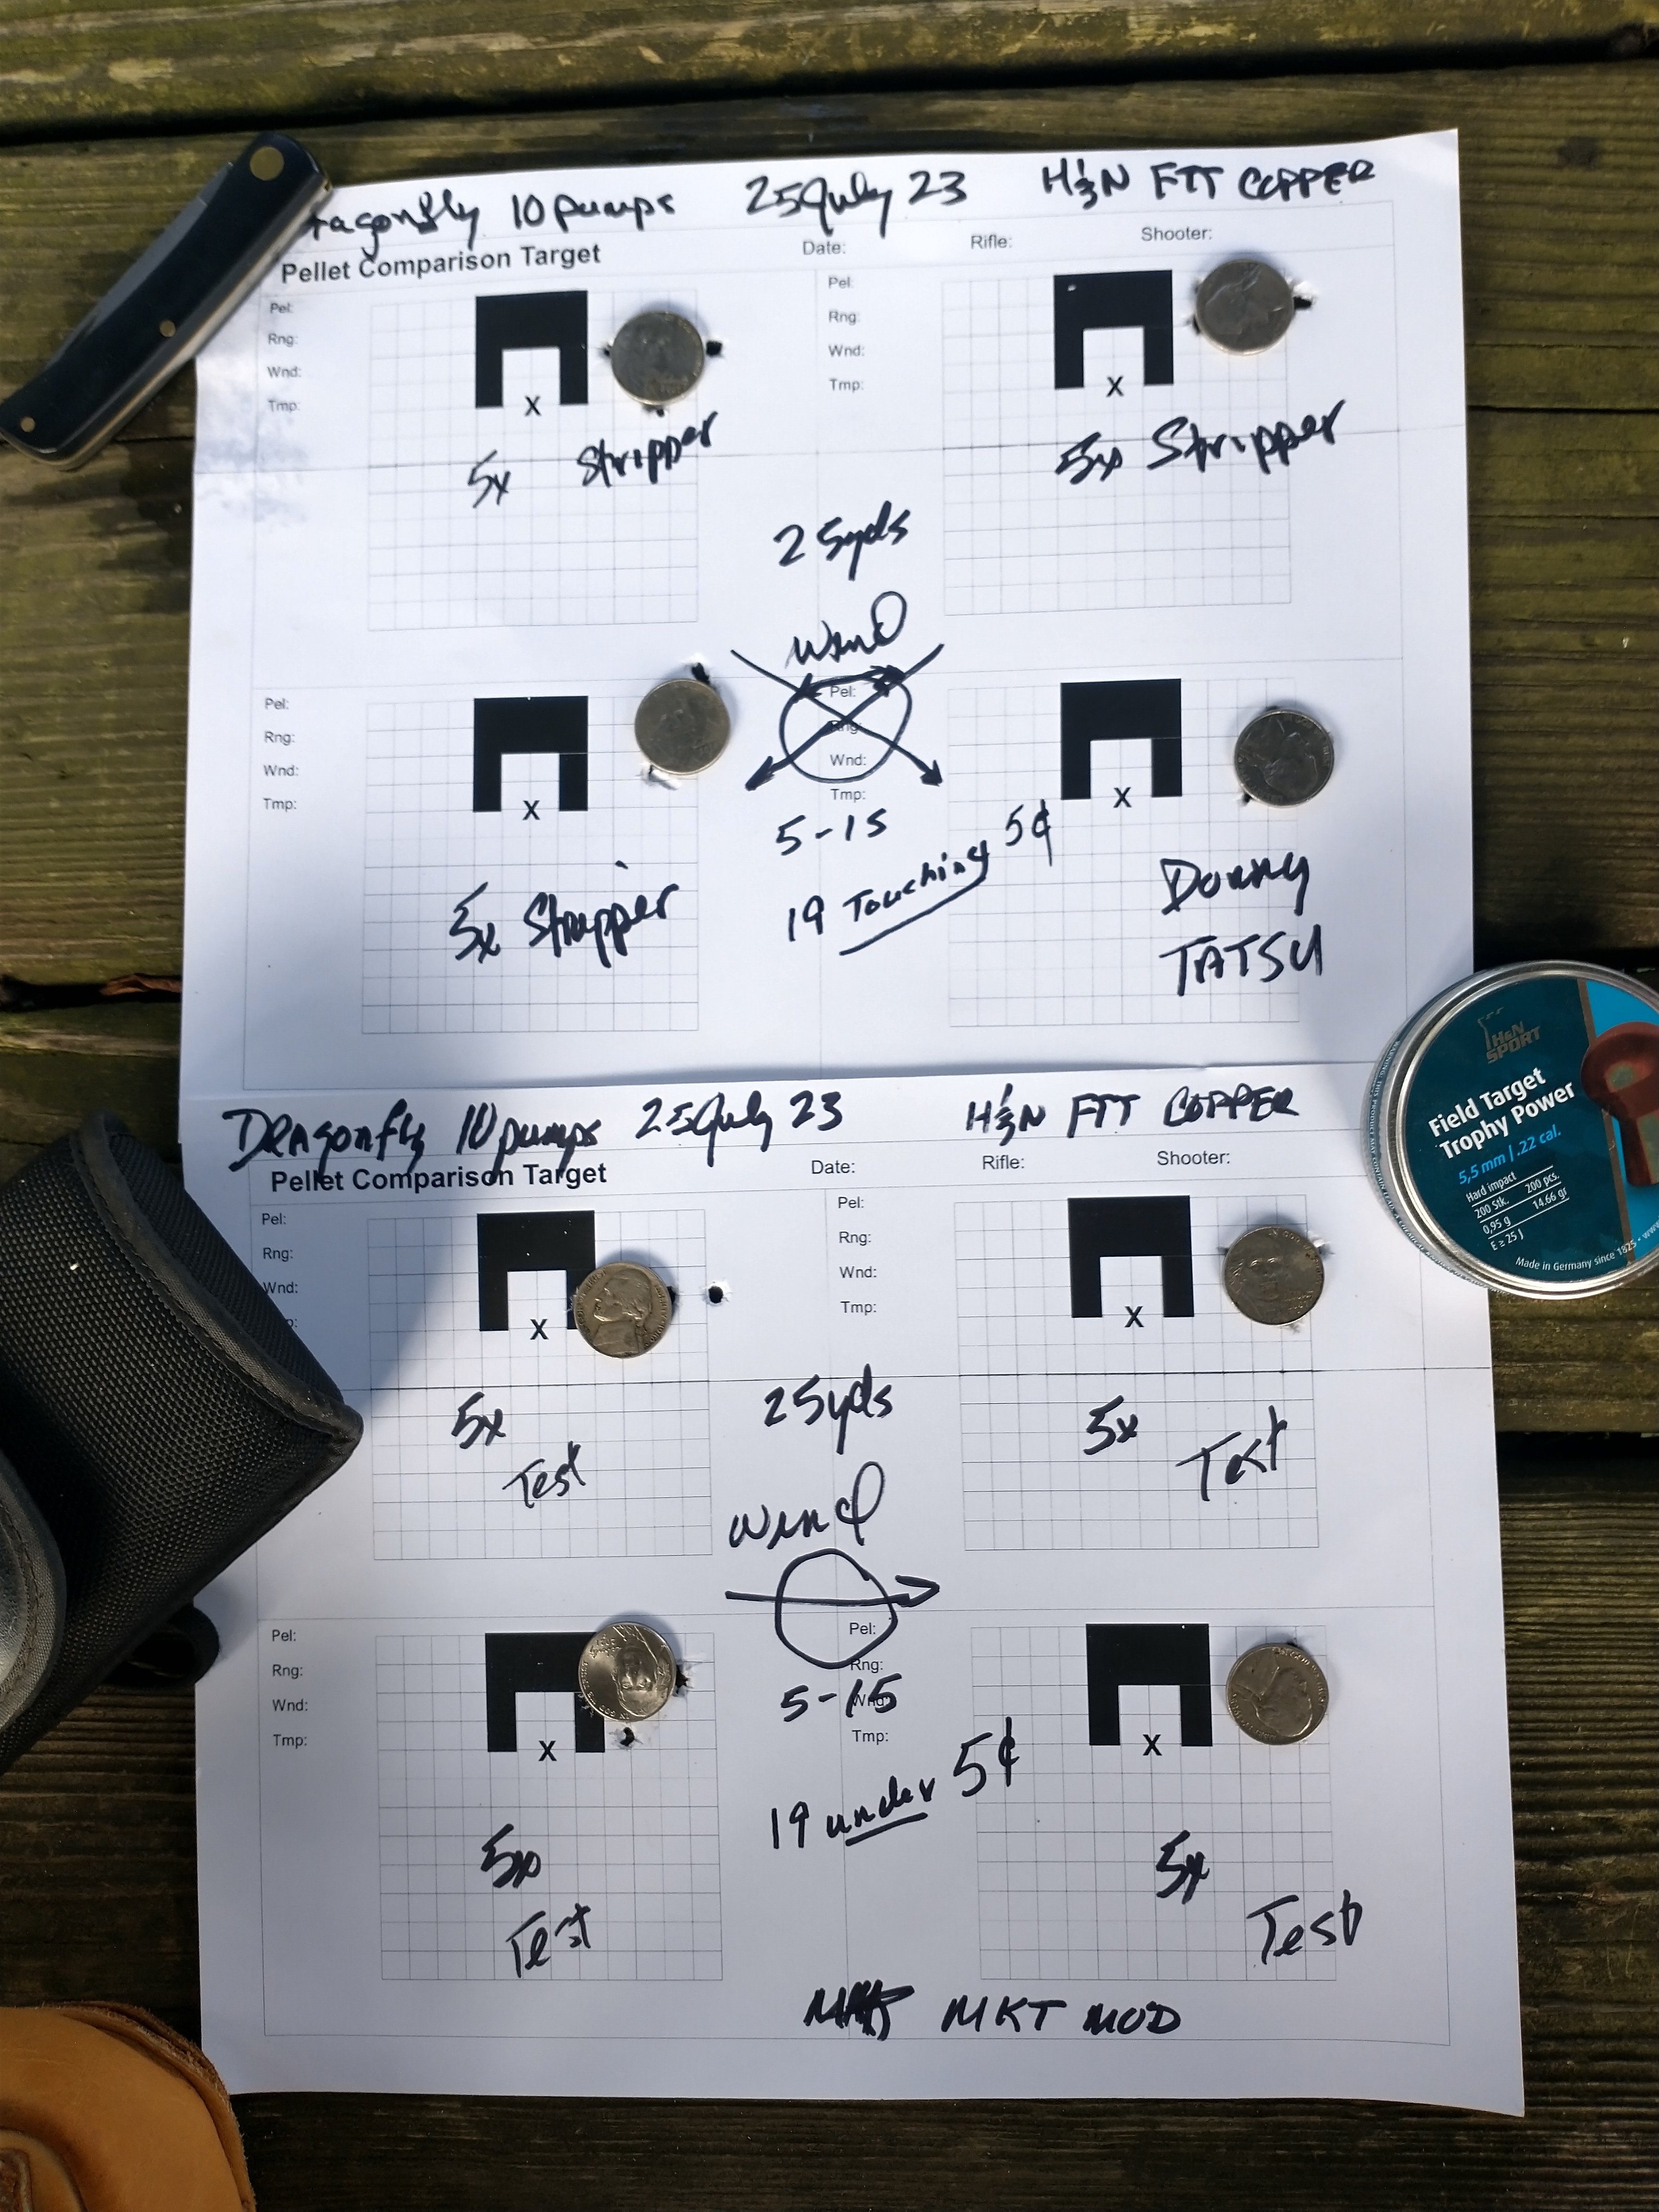 Dragonfly 10 pumps 25 July 23 H&N FTT COPPER
Pellet Comparison Target Date: Rifle: Shooter:
Pel:
Rng:
Wnd:
Tmp:
X
5x Stripper
Pel:
Rng:
Wnd:
Tmp:
X
5x Stripper
25yds
Wind
Pel:
Rng:
Wnd:
Tmp:
X
5x Stripper
Pel:
Rng:
Wnd:
Tmp:
5-15
19 Touching 5¢
X
Donny
TATSU
H&N
SPORT
Field Target
Trophy Power
5,5 mm | .22 cal.
Hard impact
200 Stk. 200 pcs.
0,95 g 14.66 gr
E ≥ 25 J
Made in Germany since 1825
Dragonfly 10 pumps 25 July 23 H&N FTT COPPER
Pellet Comparison Target Date: Rifle: Shooter:
Pel:
Rng:
Wnd:
X
5x
Test
Pel:
Rng:
Wnd:
Tmp:
X
5x
Test
25yds
Wind
Pel:
Rng:
Wnd:
Tmp:
X
5x
Test
Pel:
Rng:
Wnd:
Tmp:
5-15
19 under 5¢
X
5x
Test
MKT MOD